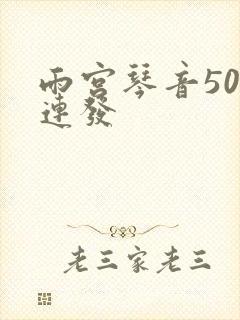 雨宮琴音50
連發
老三家老三